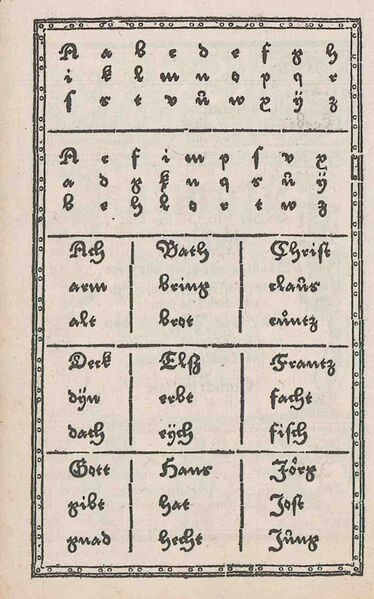 A a b c d e f g h
i k l m n o p q r
ſ s t v ů w x ÿ z
A c f i m p ſ v x
a d g k n q s ů ÿ
b e h l o r t w z
Ach Bath Chriſt
arm bring claůs
alt brot cůntz
Deck Elſz Frantz
dÿn erbt facht
dach eÿch fiſch
Gott Hans Joͤrg
gibt hat Joſt
gnad hecht Jůng